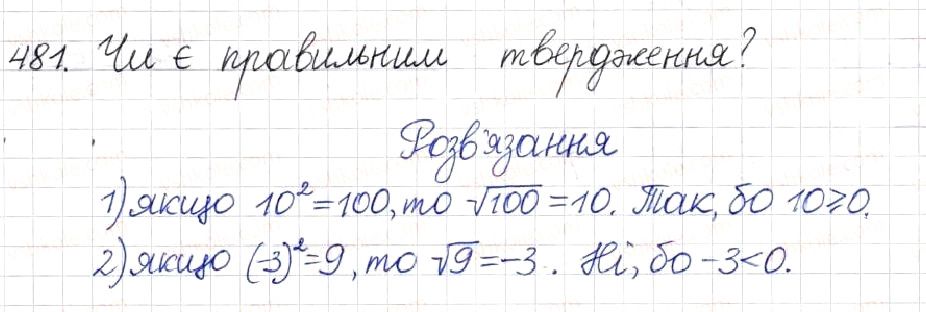 481. Чи є правильним твердження?
Розв'язання
1) якщо 10²=100, то √100=10. Так, бо 10≥0.
2) якщо (-3)²=9, то √9=-3. Ні, бо -3<0.